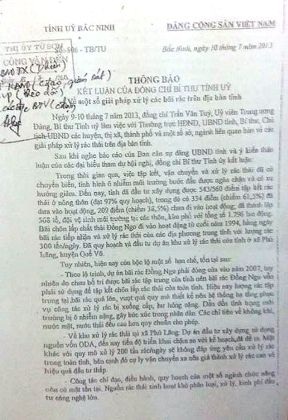 TỈNH UỶ BẮC NINH
ĐẢNG CỘNG SẢN VIỆT NAM
THỊ ỦY TỪ SƠN
-TB/TU
Bắc Ninh, ngày 10 tháng 7 năm 2013
CÔNG VĂN
THÔNG BÁO
KẾT LUẬN CỦA ĐỒNG CHÍ BÍ THƯ TỈNH UỶ
Về một số giải pháp xử lý các bãi rác trên địa bàn tỉnh
Ngày 9-10 tháng 7 năm 2013, đồng chí Trần Văn Tuý, Uỷ viên Trung ương
Đảng, Bí thư Tỉnh uỷ làm việc với Thường trực HĐND, UBND tỉnh, Bí thư, Chủ
tịch UBND các huyện, thị xã, thành phố và một số sở, ngành liên quan và các
giải pháp xử lý rác thải trên địa bàn tỉnh.
Sau khi nghe báo cáo của Ban cán sự đảng UBND tỉnh và ý kiến thảo
luận của các đại biểu tham dự hội nghị, đồng chí Bí thư Tỉnh uỷ kết luận:
Trong thời gian qua, việc tập kết, vận chuyển và xử lý rác thải đã có
chuyển biến, tình hình ô nhiễm môi trường bước đầu được ngăn chặn và có xu
hướng giảm. Đến nay, tỉnh đã đầu tư xây dựng được 543/560 điểm tập kết rác
thải ở nông thôn (đạt 97% quy hoạch), trong đó có 334 điểm (chiếm 61,5%) đã
đưa vào hoạt động, 209 điểm (chiếm 38,5%) chưa đi vào hoạt động; đã thành lập
508 tổ, đội vệ sinh môi trường tại các thôn, khu phố với tổng số 1.796 lao động.
Bãi chôn lấp chất thải Đồng Ngo đi vào hoạt động từ cuối năm 1994, hàng ngày
bãi rác tiếp nhận và xử lý rác thải của các địa phương trong tỉnh với lượng rác
300 tấn/ngày. Đã quy hoạch và đầu tư dự án khu xử lý rác thải của tỉnh ở xã Phù
Lãng, huyện Quế Võ.
Tuy nhiên, hiện nay còn bộc lộ một số hạn chế, tồn tại sau:
- Theo lộ trình, dự án bãi rác Đồng Ngo phải đóng cửa vào năm 2007, tuy
nhiên do chưa bố trí được bãi rác tập trung của tỉnh nên bãi rác Đồng Ngo vẫn
phải sử dụng để tập kết chôn lấp rác thải của toàn tỉnh. Hiện nay lượng rác tập
trung tại bãi rác quá lớn, vượt quá quy mô thiết kế nên hệ thống hạ tầng phục
vụ công tác xử lý rác bị xuống cấp, hư hỏng nặng. Dẫn đến tình trạng môi
trường bị ô nhiễm nặng, gây bức xúc trong nhân dân. Các chỉ tiêu về không khí,
nước mặt, nước thải đều cao hơn quy chuẩn cho phép.
- Về khu xử lý rác thải tại xã Phù Lãng. Dự án đầu tư xây dựng sử dụng
nguồn vốn ODA, đến nay tiến độ triển khai chậm so với kế hoạch đề ra. Mặt
khác với quy mô xử lý 200 tấn rác/ngày sẽ không đáp ứng yêu cầu xử lý rác
trong toàn tỉnh.
hiệu quả đầu tư thấp.
Công tác chỉ đạo, điều hành, quy hoạch của một số ngành chức năng
còn có mặt tồn tại. Nguồn rác thải sinh hoạt khó phân loại, xử lý, kinh phí đầu
tư công nghệ lớn.